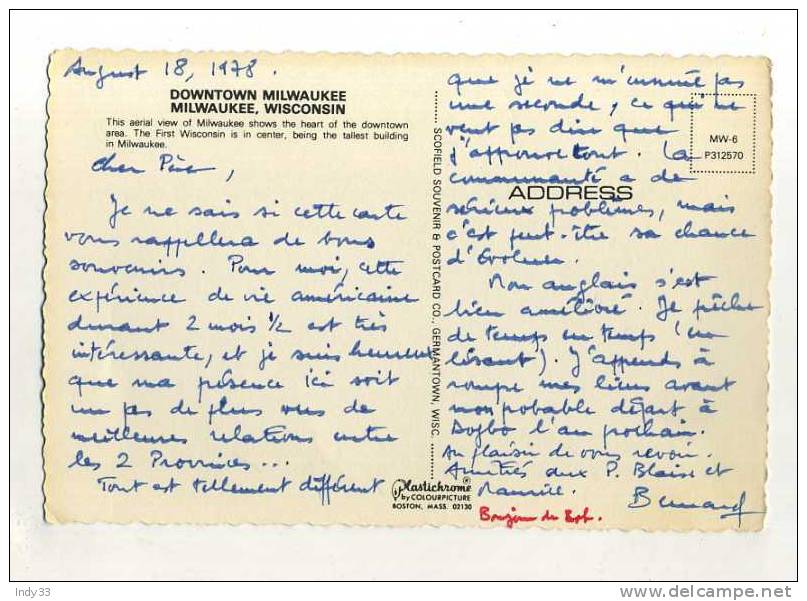 August 18, 1978.
DOWNTOWN MILWAUKEE
MILWAUKEE, WISCONSIN
This aerial view of Milwaukee shows the heart of the downtown
area. The First Wisconsin is in center, being the tallest building
in Milwaukee.
Cher Père,
Je ne sais si cette carte
vous rappellera de bons
souvenirs. Pour moi, cette
expérience de vie américaine
durant 2 mois ½ est très
intéressante, et je suis heureux
que ma présence ici soit
un pas de plus vers de
meilleures relations entre
les 2 Provinces...
Tout est tellement différent
que je ne m'ennuie pas
une seconde, ce qui ne
veut pas dire que
j'approuve tout. La
communauté a de
sérieux problèmes, mais
c'est peut-être sa chance
d'évoluer.
Mon anglais s'est
bien amélioré. Je prêche
de temps en temps (en
lisant). J'apprends à
rompre mes liens avant
mon probable départ à
l'an prochain.
Au plaisir de vous revoir.
Amitiés aux P. Blaise et
Maurice. Bernard
Bonjour de
SCOFIELD SOUVENIR & POSTCARD CO., GERMANTOWN, WISC.
MW-6
P312570
ADDRESS
Plastichrome®
by COLOURPICTURE
BOSTON, MASS. 02130
Indy33
delcampe.net